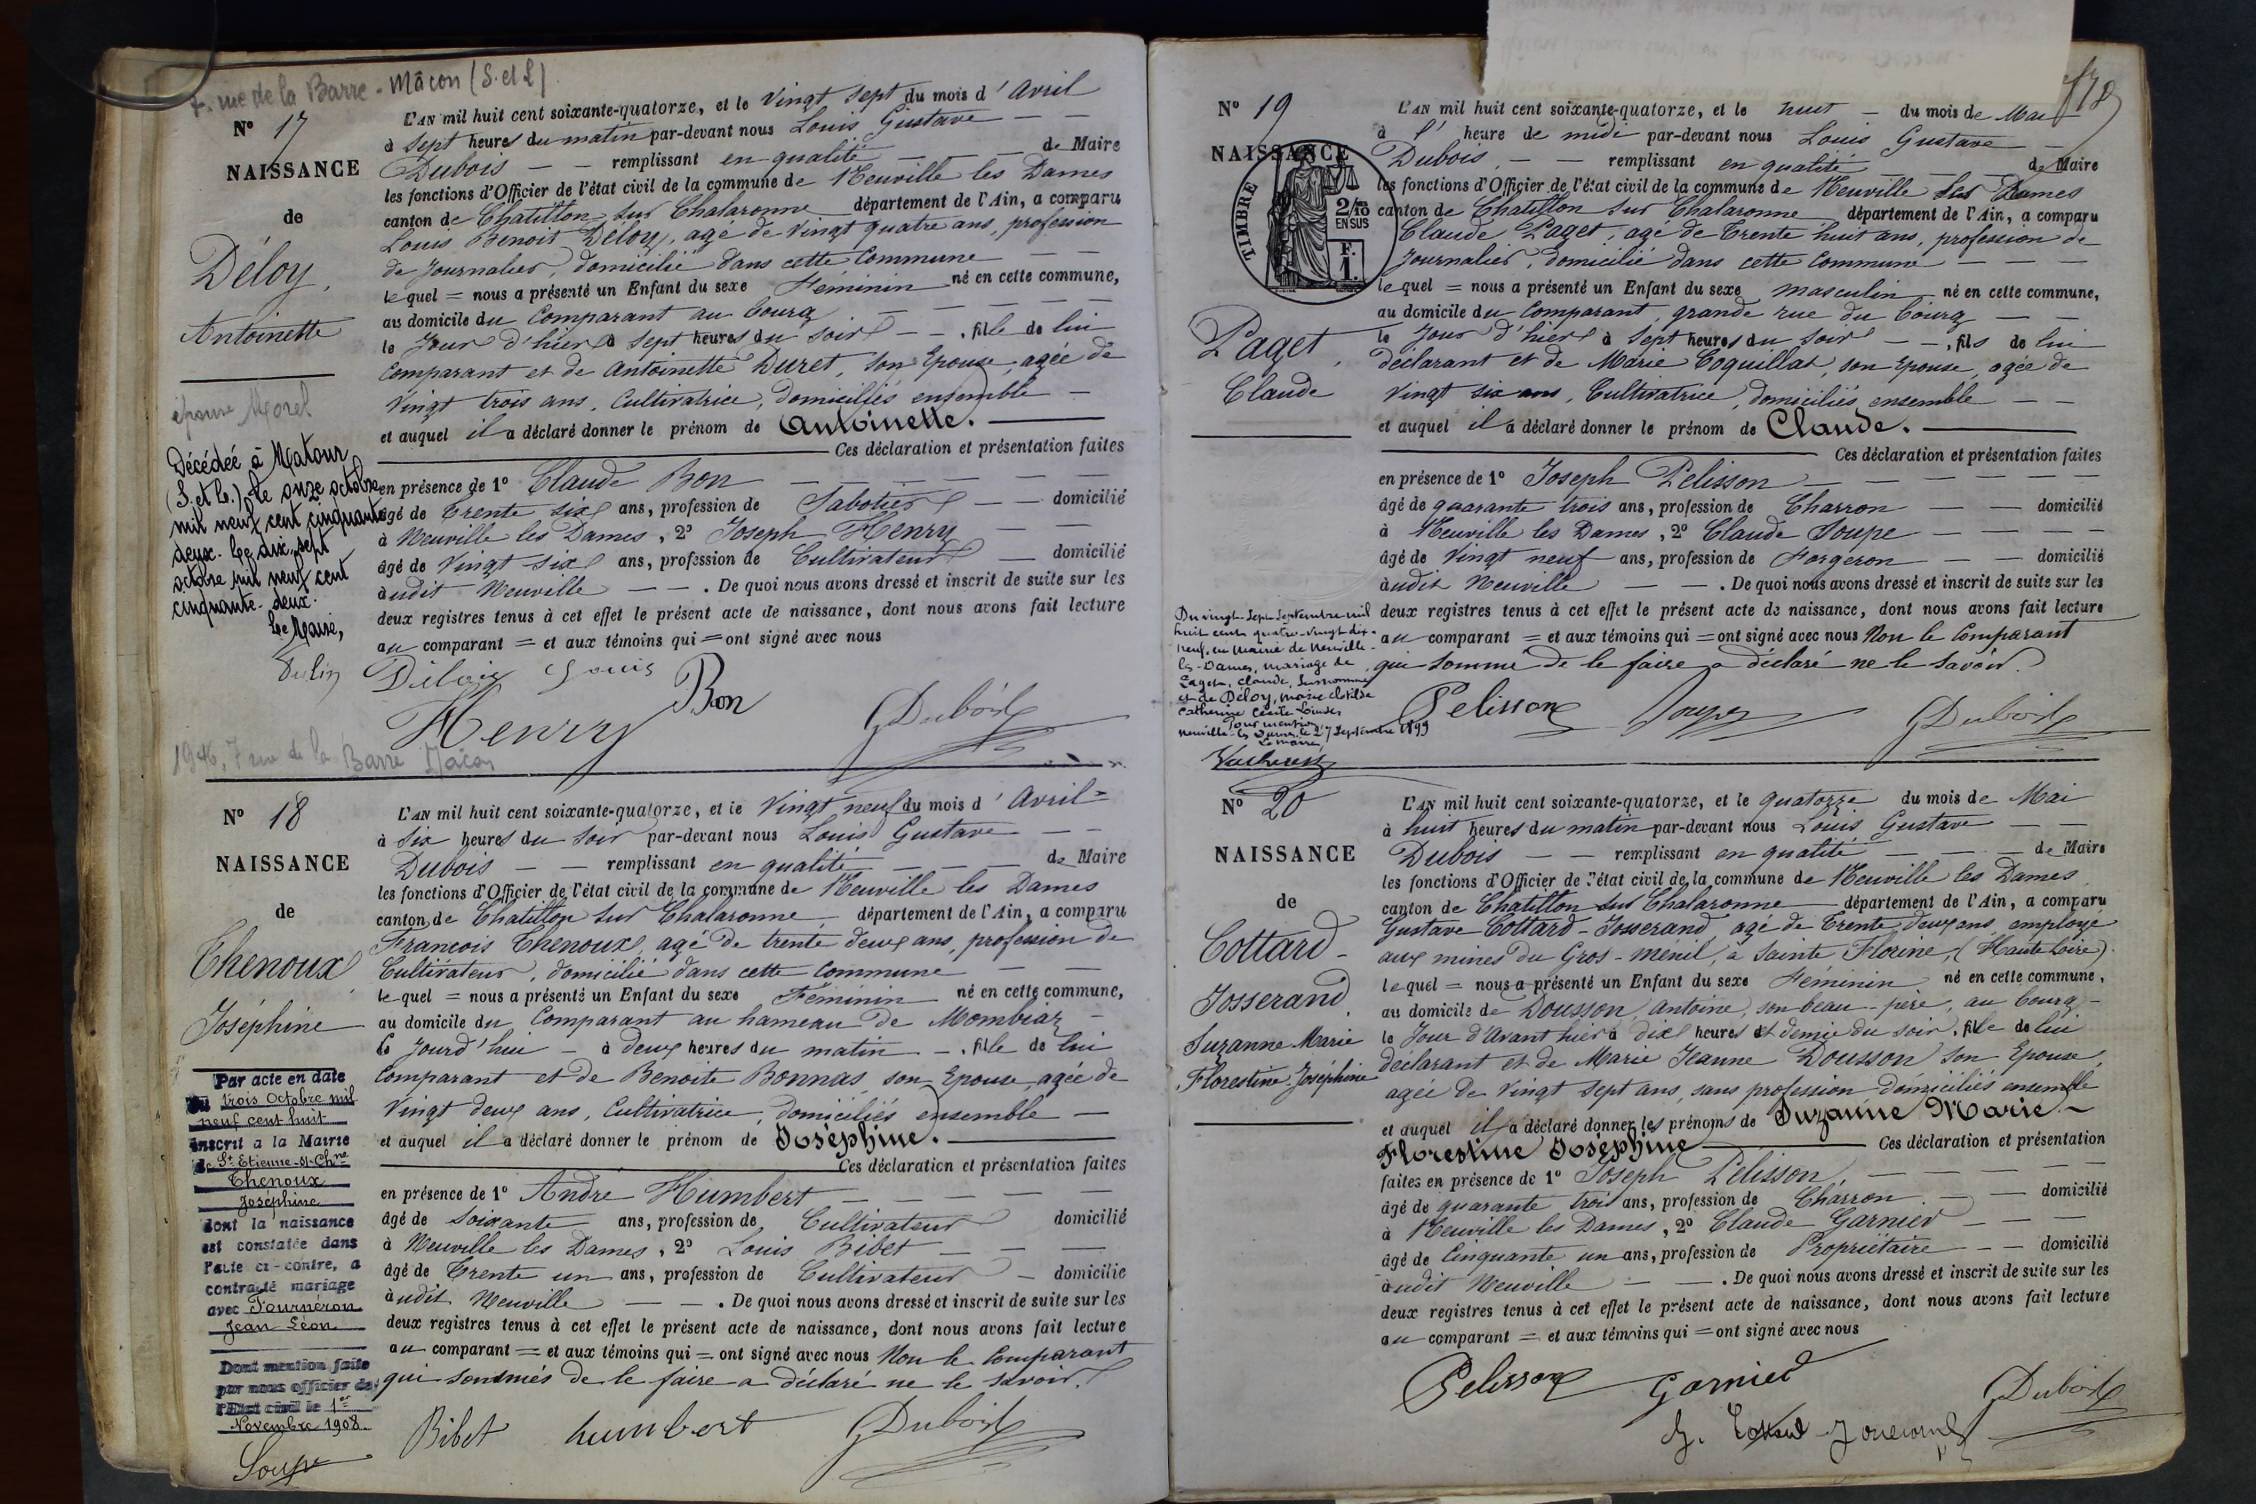 7. rue de la Barre - Mâcon (S. et L)
N° 17
NAISSANCE
de
Déloy,
Antoinette
épouse Morel
Décédée à Matour
(S. et L.) le onze octobre
mil neuf cent cinquante
deux. Le dix-sept
octobre mil neuf cent
cinquante-deux.
Le Maire,
L'AN mil huit cent soixante-quatorze, et le Vingt sept du mois d'Avril
à sept heures du matin par-devant nous Louis Gustave
Dubois — — remplissant en qualité — — de Maire
les fonctions d'Officier de l'état civil de la commune de Neuville les Dames
canton de Chatillon sur Chalaronne département de l'Ain, a comparu
Louis Benoit Déloy, agé de vingt quatre ans, profession
de Journalier, domicilié dans cette Commune — —
lequel = nous a présenté un Enfant du sexe Féminin né en cette commune,
au domicile du Comparant au bourg — — —
le Jour d'hier à sept heures du soir — —, fille de lui
Comparant et de Antoinette Duret, son Epouse, agée de
Vingt trois ans, Cultivatrice, domiciliés ensemble —
et auquel il a déclaré donner le prénom de Antoinette.
Ces déclaration et présentation faites
en présence de 1° Claude Bon — — — —
âgé de Trente six ans, profession de Sabotier — — domicilié
à Neuville les Dames, 2° Joseph Henry — —
âgé de Vingt six ans, profession de Cultivateur — domicilié
àudit Neuville — — . De quoi nous avons dressé et inscrit de suite sur les
deux registres tenus à cet effet le présent acte de naissance, dont nous avons fait lecture
au comparant = et aux témoins qui = ont signé avec nous
Déloix Louis
Bon
Henry
GDubois
1946, 7 rue de la Barre Mâcon
N° 18
NAISSANCE
de
Thenoux
Joséphine
Par acte en date
du trois Octobre mil
neuf cent huit
inscrit a la Mairie
de St Etienne-s/-Chne
Thenoux
Joséphine
dont la naissance
est constatée dans
l'acte ci-contre, a
contracté mariage
avec Fournéron
Jean Léon
Dont mention faite
par nous officier de
l'Etat civil le 1er
Novembre 1908.
Soupe
L'AN mil huit cent soixante-quatorze, et le Vingt neuf du mois d'Avril
à six heures du soir par-devant nous Louis Gustave — —
Dubois — — remplissant en qualité — — de Maire
les fonctions d'Officier de l'état civil de la commune de Neuville les Dames
canton de Chatillon sur Chalaronne département de l'Ain, a comparu
Francois Thenoux, agé de trente deux ans, profession de
Cultivateur, domicilié dans cette Commune — —
lequel = nous a présenté un Enfant du sexe Féminin né en cette commune,
au domicile du Comparant au hameau de Mombiaz —
le Jourd'hui — à deux heures du matin —, fille de lui
Comparant et de Benoite Bonnas, son Epouse, agée de
Vingt deux ans, Cultivatrice, domiciliés ensemble —
et auquel il a déclaré donner le prénom de Joséphine.
Ces déclaration et présentation faites
en présence de 1° André Humbert — — — —
âgé de soixante ans, profession de Cultivateur domicilié
à Neuville les Dames, 2° Louis Bibet — — —
âgé de Trente un ans, profession de Cultivateur — domicilié
àudit Neuville — — . De quoi nous avons dressé et inscrit de suite sur les
deux registres tenus à cet effet le présent acte de naissance, dont nous avons fait lecture
au comparant = et aux témoins qui = ont signé avec nous Non le Comparant
qui sommés de le faire a déclaré ne le savoir.
Bibet humbert GDubois
N° 19
NAISSANCE
TIMBRE
2/10 EN SUS
F. 1.
Paget,
Claude
Du vingt-sept Septembre mil
huit cent quatre-vingt dix-
neuf, en mairie de Neuville-
les-Dames, mariage de
Paget, Claude, susnommé
et de Déloy, Marie Clotilde
Catherine
Pour mention
Neuville-les-Dames, le 27 Septembre 1899
Le maire,
L'AN mil huit cent soixante-quatorze, et le huit — du mois de Mai
à l'heure de midi par-devant nous Louis Gustave —
Dubois — — remplissant en qualité — — de Maire
les fonctions d'Officier de l'état civil de la commune de Neuville les Dames
canton de Chatillon sur Chalaronne département de l'Ain, a comparu
Claude Paget, agé de Trente huit ans, profession de
Journalier, domicilié dans cette Commune — — —
lequel = nous a présenté un Enfant du sexe masculin né en cette commune,
au domicile du Comparant, grande rue du bourg — —
le Jour d'hier à sept heures du soir — —, fils de lui
déclarant et de Marie Coquillat, son Epouse, agée de
Vingt six ans, Cultivatrice, domiciliés ensemble — —
et auquel il a déclaré donner le prénom de Claude.
Ces déclaration et présentation faites
en présence de 1° Joseph Pelisson — — — —
âgé de quarante trois ans, profession de Charron — — domicilié
à Neuville les Dames, 2° Claude Soupe — — —
âgé de Vingt neuf ans, profession de Forgeron — — domicilié
àudit Neuville — — . De quoi nous avons dressé et inscrit de suite sur les
deux registres tenus à cet effet le présent acte de naissance, dont nous avons fait lecture
au comparant = et aux témoins qui = ont signé avec nous Non le Comparant
qui sommé de le faire a déclaré ne le savoir.
Pelisson Soupe GDubois
N° 20
NAISSANCE
de
Cottard-
Josserand,
Suzanne Marie
Florestine Joséphine
L'AN mil huit cent soixante-quatorze, et le quatorze du mois de Mai
à huit heures du matin par-devant nous Louis Gustave — —
Dubois — — remplissant en qualité — — de Maire
les fonctions d'Officier de l'état civil de la commune de Neuville les Dames
canton de Chatillon sur Chalaronne département de l'Ain, a comparu
Gustave Cottard-Josserand, agé de Trente deux ans, employé
aux mines du Gros-Ménil, à Sainte Florine, (Haute Loire)
lequel = nous a présenté un Enfant du sexe Féminin né en cette commune,
au domicile de Dousson, Antoine, son beau-père, au bourg —
le Jour d'Avant hier à dix heures et demie du soir, fille de lui
déclarant et de Marie Jeanne Dousson son Epouse,
agée de Vingt sept ans, sans profession domiciliés ensemble
et auquel il a déclaré donner les prénoms de Suzanne Marie —
Florestine Joséphine Ces déclaration et présentation
faites en présence de 1° Joseph Pélisson, — — — —
âgé de quarante trois ans, profession de Charron — — domicilié
à Neuville les Dames, 2° Claude Garnier — — —
âgé de Cinquante un ans, profession de Propriétaire — — domicilié
àudit Neuville — — . De quoi nous avons dressé et inscrit de suite sur les
deux registres tenus à cet effet le présent acte de naissance, dont nous avons fait lecture
au comparant = et aux témoins qui = ont signé avec nous
Pelisson Garnier GDubois